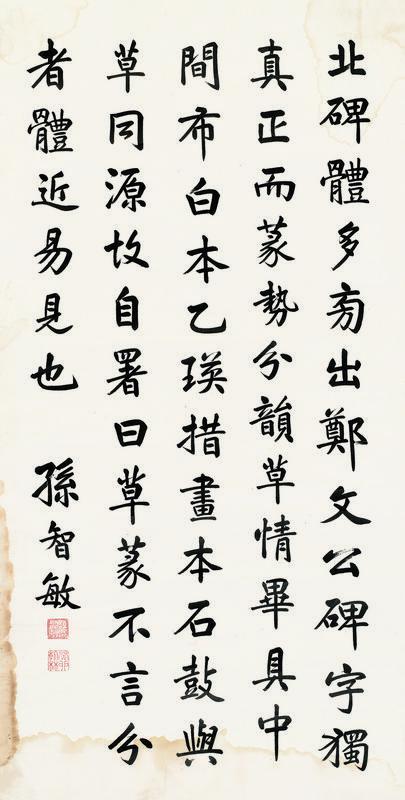 北碑體多旁出鄭文公碑字獨
真正而篆勢分韻草情畢具中
間布白本乙瑛措畫本石鼓與
草同源故自署曰草篆不言分
者體近易見也
孫智敏